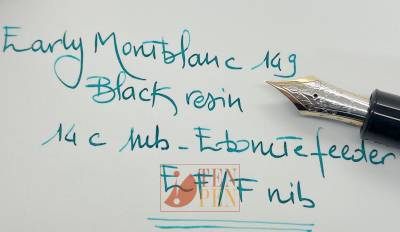 Early Montblanc 149
Black resin
14 c nib - Ebonite feeder
EF/F nib
TEN
PEN